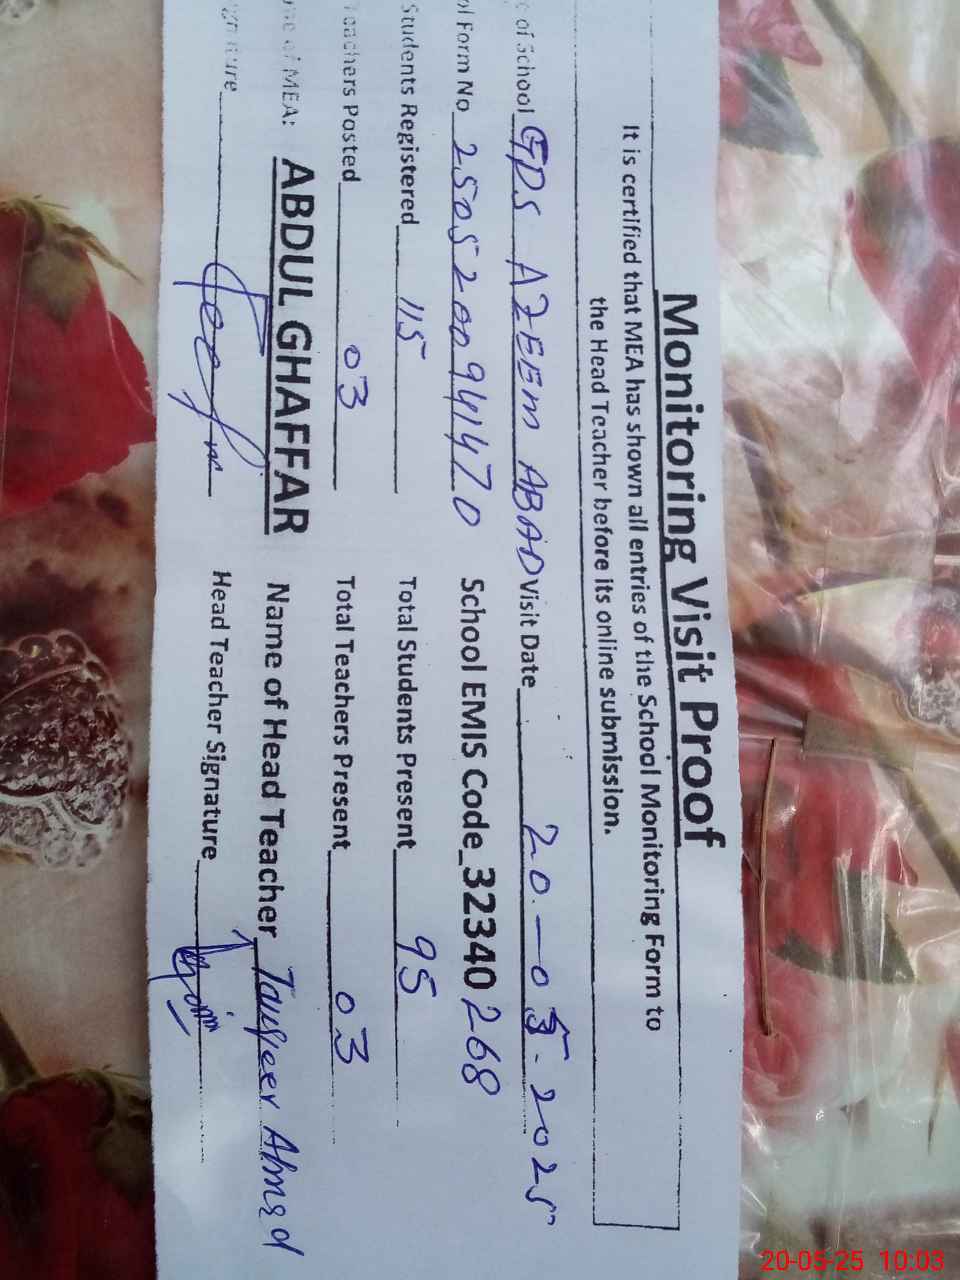 Monitoring Visit Proof
It is certified that MEA has shown all entries of the School Monitoring Form to
the Head Teacher before its online submission.
of School GPS AZEEM ABAD Visit Date 20-05-2025
Form No School EMIS Code 32340268
Students Registered 115 Total Students Present 95
Teachers Posted 03 Total Teachers Present 03
of MEA: ABDUL GHAFFAR Name of Head Teacher Tauqeer Ahmad
Head Teacher Signature
20-05-25 10:03